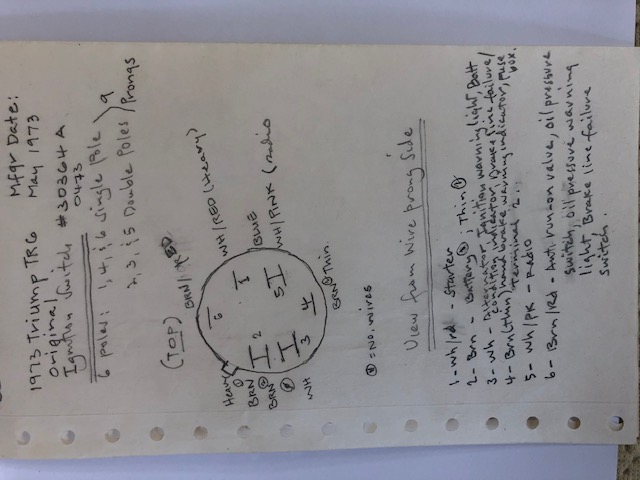 1973 Triump TR6 Mfgr Date:
Original May 1973
Ignition Switch #30364A
0473
6 poles: 1, 4, & 6 single Pole
2, 3, & 5 Double Poles
9 Prongs
(TOP)
BRN/
WH/RED (Heavy)
BLUE
WH/PINK (radio
BRN Thin
Heavy
BRN
BRN
WH
1
2
3
4
5
6
= No. wires
View from Wire prong Side
1 - wh/rd - Starter
2 - Brn - Battery ; Thin
3 - wh - alternator, Ignition warning light, Batt
condition indicator, Brake line failure/
4 - Brn (thin) hand brake warning indicator, Fuse
Terminal 2. box.
5 - wh/pk - Radio
6 - Brn/Rd - Anti runnon valve, oil pressure
switch, oil pressure warning
light, Brake line failure
switch.